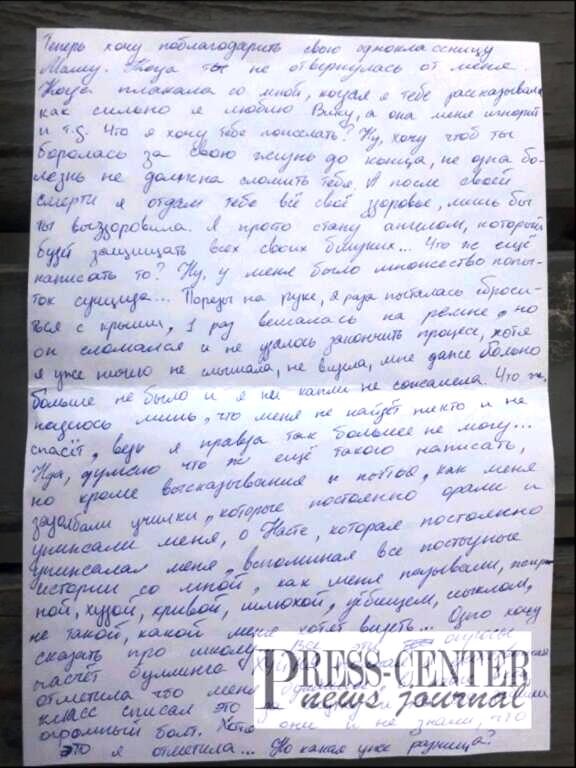 Теперь хочу поблагодарить свою одноклассницу
Машу. Тогда ты не отвернулась от меня.
Тогда плакала со мной, когда я тебе рассказывала
как сильно я люблю Вику, а она меня игнорит
и т.д. Что я хочу тебе пожелать? Ну, хочу чтоб ты
боролась за свою жизнь до конца, не одна бо-
лезнь не должна сломить тебя. А после своей
смерти я отдам тебе всё своё здоровье, лишь бы
ты выздоровила. Я просто стану ангелом, который
будет защищать всех своих близких... Что же ещё
написать то? Ну, у меня было множество попы-
ток суицида... Порезы на руке, я раза пыталась сброси-
ться с крыши, 1 раз вешалась на ремне, но
он сломался и не удалось закончить процесс, хотя
я уже ничего не слышала, не видела, мне даже больно
больше не было и я ни капли не сожалела. Что ж,
надеюсь лишь, что меня не найдёт никто и не
спасёт, ведь я правда так больше не могу...
Нда, думаю что же ещё такого написать,
но кроме высказывания и о том, как меня
задолбали училки, которые постоянно орали и
унижали меня, о Насте, которая постоянно
унижала меня, вспоминая все постыдные
истории со мной, как меня называли,
ной, худой, кривой, шлюхой, убищем,
не такой, какой меня хотят видеть... Одно хочу
сказать про школу. Все эти опросы
насчёт буллинга
отметила что меня
класс списал это
огромный болт. Хотя они и не знали, что
это я отметила... Но какая уже разница?
PRESS-CENTER
news journal